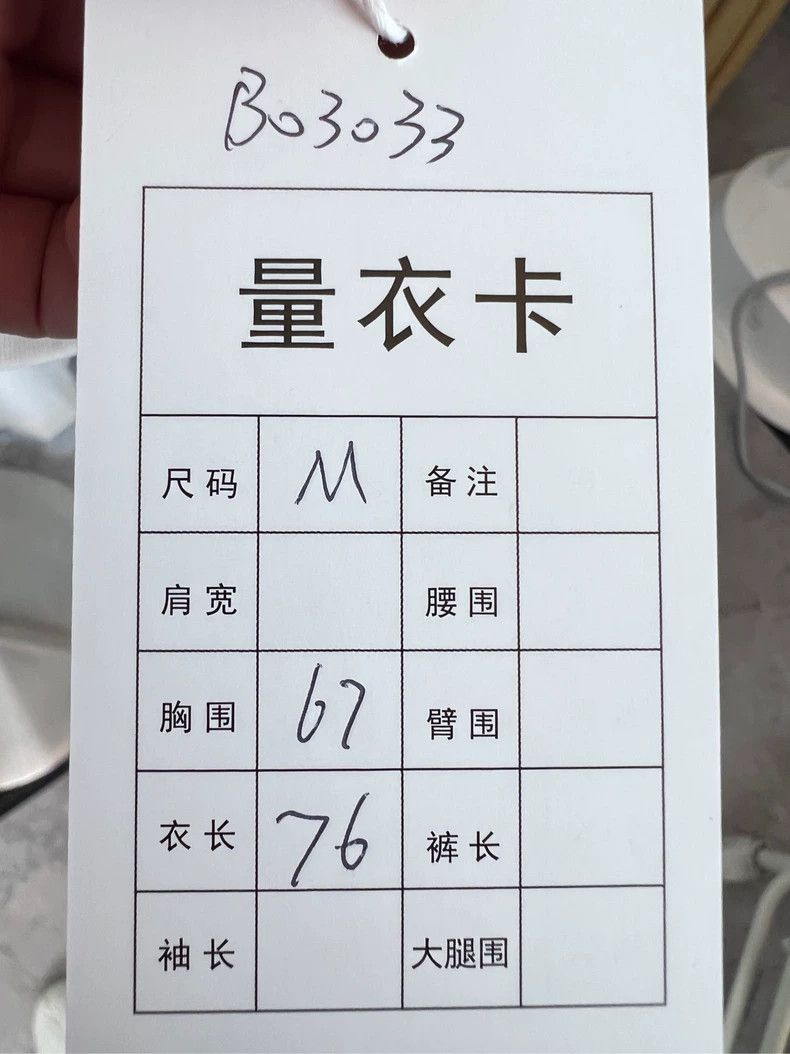 B03033
量衣卡
尺码 M 备注
肩宽 腰围
胸围 67 臂围
衣长 76 裤长
袖长 大腿围